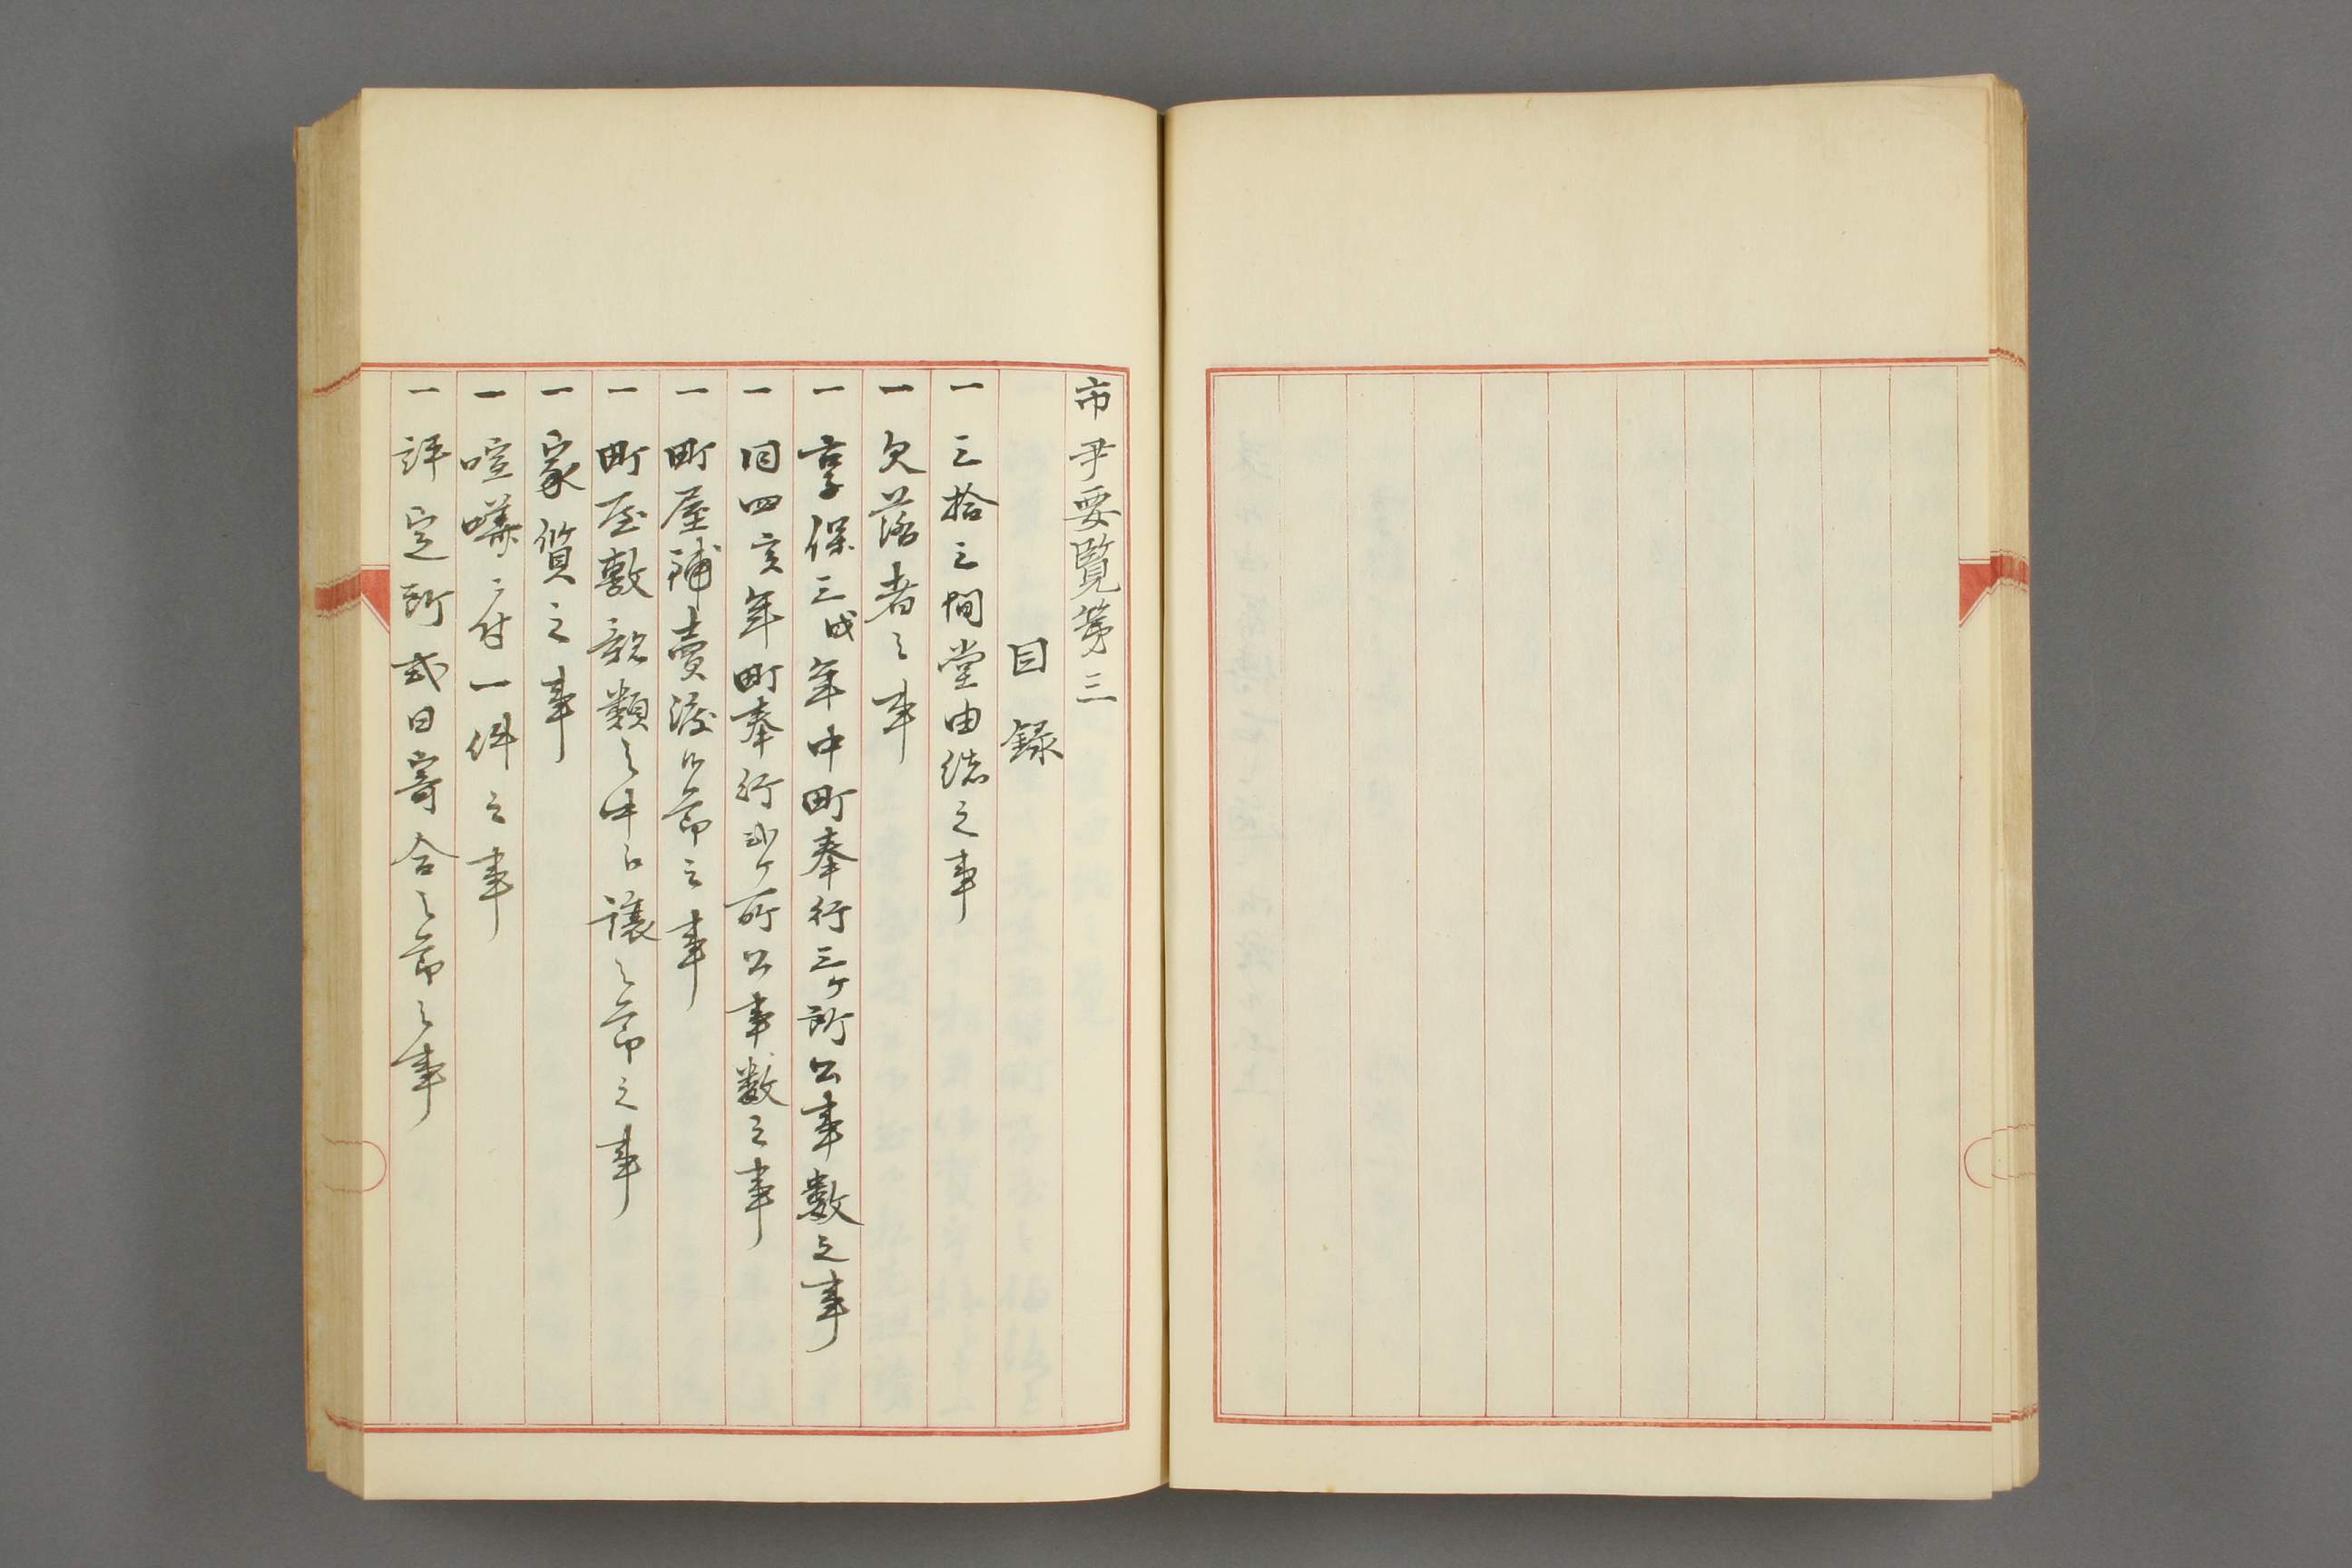 市尹要覧第三
目録
一 三拾三間堂由緒之事
一 欠落者之事
一 享保三戌年中町奉行三ヶ所公事数之事
一 同四亥年町奉行弐ヶ所公事数之事
一 町屋鋪賣渡候節之事
一 町屋敷親類之中江譲之節之事
一 家質之事
一 喧嘩ニ付一件之事
一 評定所式日寄合之節之事